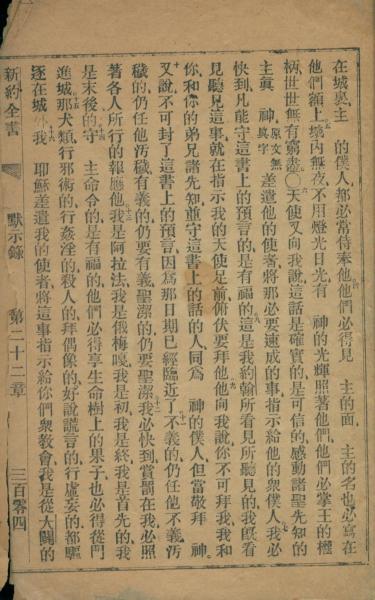 在城裏主 的僕人都必常侍奉他他們必得見 主的面 主的名也必寫在
他們額上城內無夜不用燈光日光有 神的光輝照著他們他們必掌王的權
柄世世無有窮盡○天使又向我說這話是確實的是可信的感動諸聖先知的
主眞 神原文無眞字差遣他的使者將那必要速成的事指示給他的衆僕人我必
快到凡能守這書上的預言的是有福的這是我約翰所看見所聽見的我旣看
見聽見這事就在指示我的天使足前俯伏要拜他他向我說你不可拜我我和
你和你的弟兄諸先知並守這書上的話的人同爲 神的僕人但當敬拜 神
又說不可封了這書上的預言因爲那日期已經臨近了不義的仍任他不義污
穢的仍任他污穢有義的仍要有義聖潔的仍要聖潔我必快到賞罰在我必照
著各人所行的報應他我是阿拉法我是俄梅嘎我是初我是終我是首先的我
是末後的守 主命令的是有福的他們必得享生命樹上的果子也必得從門
進城那犬類行邪術的行姦淫的殺人的拜偶像的好說謊言的行虛妄的都驅
逐在城外我 耶穌差遣我的使者將這事指示給你們衆教會我是從大闢的
新約全書 默示錄 第二十二章 三百零四